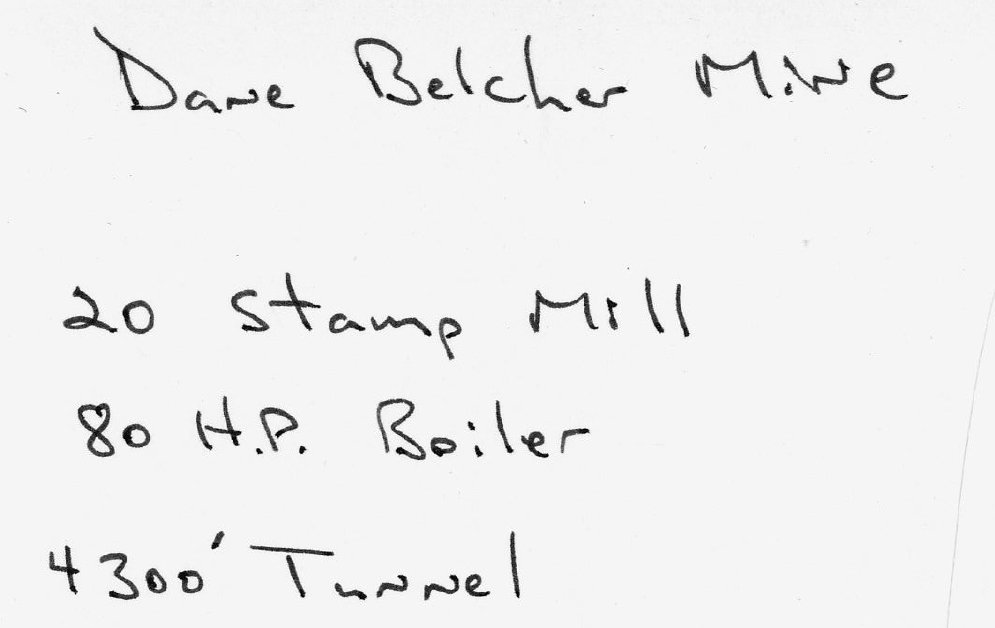 Dane Belcher Mine
20 Stamp Mill
80 H.P. Boiler
4300' Tunnel